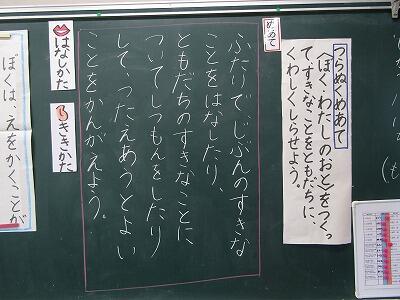 つらぬくめあて
〈ぼく・わたしのお〇〉をつくっ
て、すきなことをともだちに、
くわしくしらせよう。
めあて
ふたりで、じぶんのすきな
ことをはなしたり、
ともだちのすきなことに
ついてしつもんをしたり
して、つたえあうとよい
ことをかんがえよう。
はなしかた
ききかた
ぼくは、えをかくことが